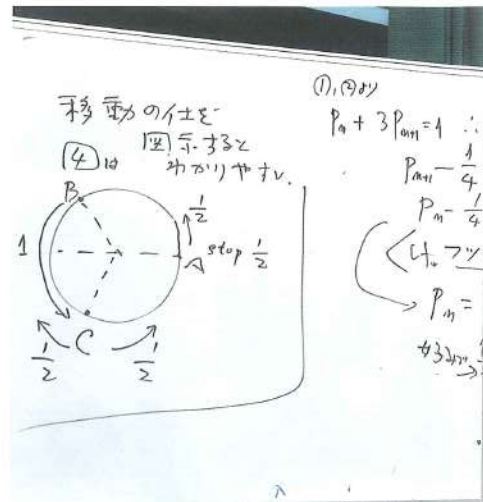 移動の仕方を
図示すると
④は
わかりやすい。
B
1
1/2
A stop 1/2
C
1/2
1/2
①,②より
Pn + 3Pn+1 = 1 ∴
Pn+1 - 1/4
Pn - 1/4
Pn =